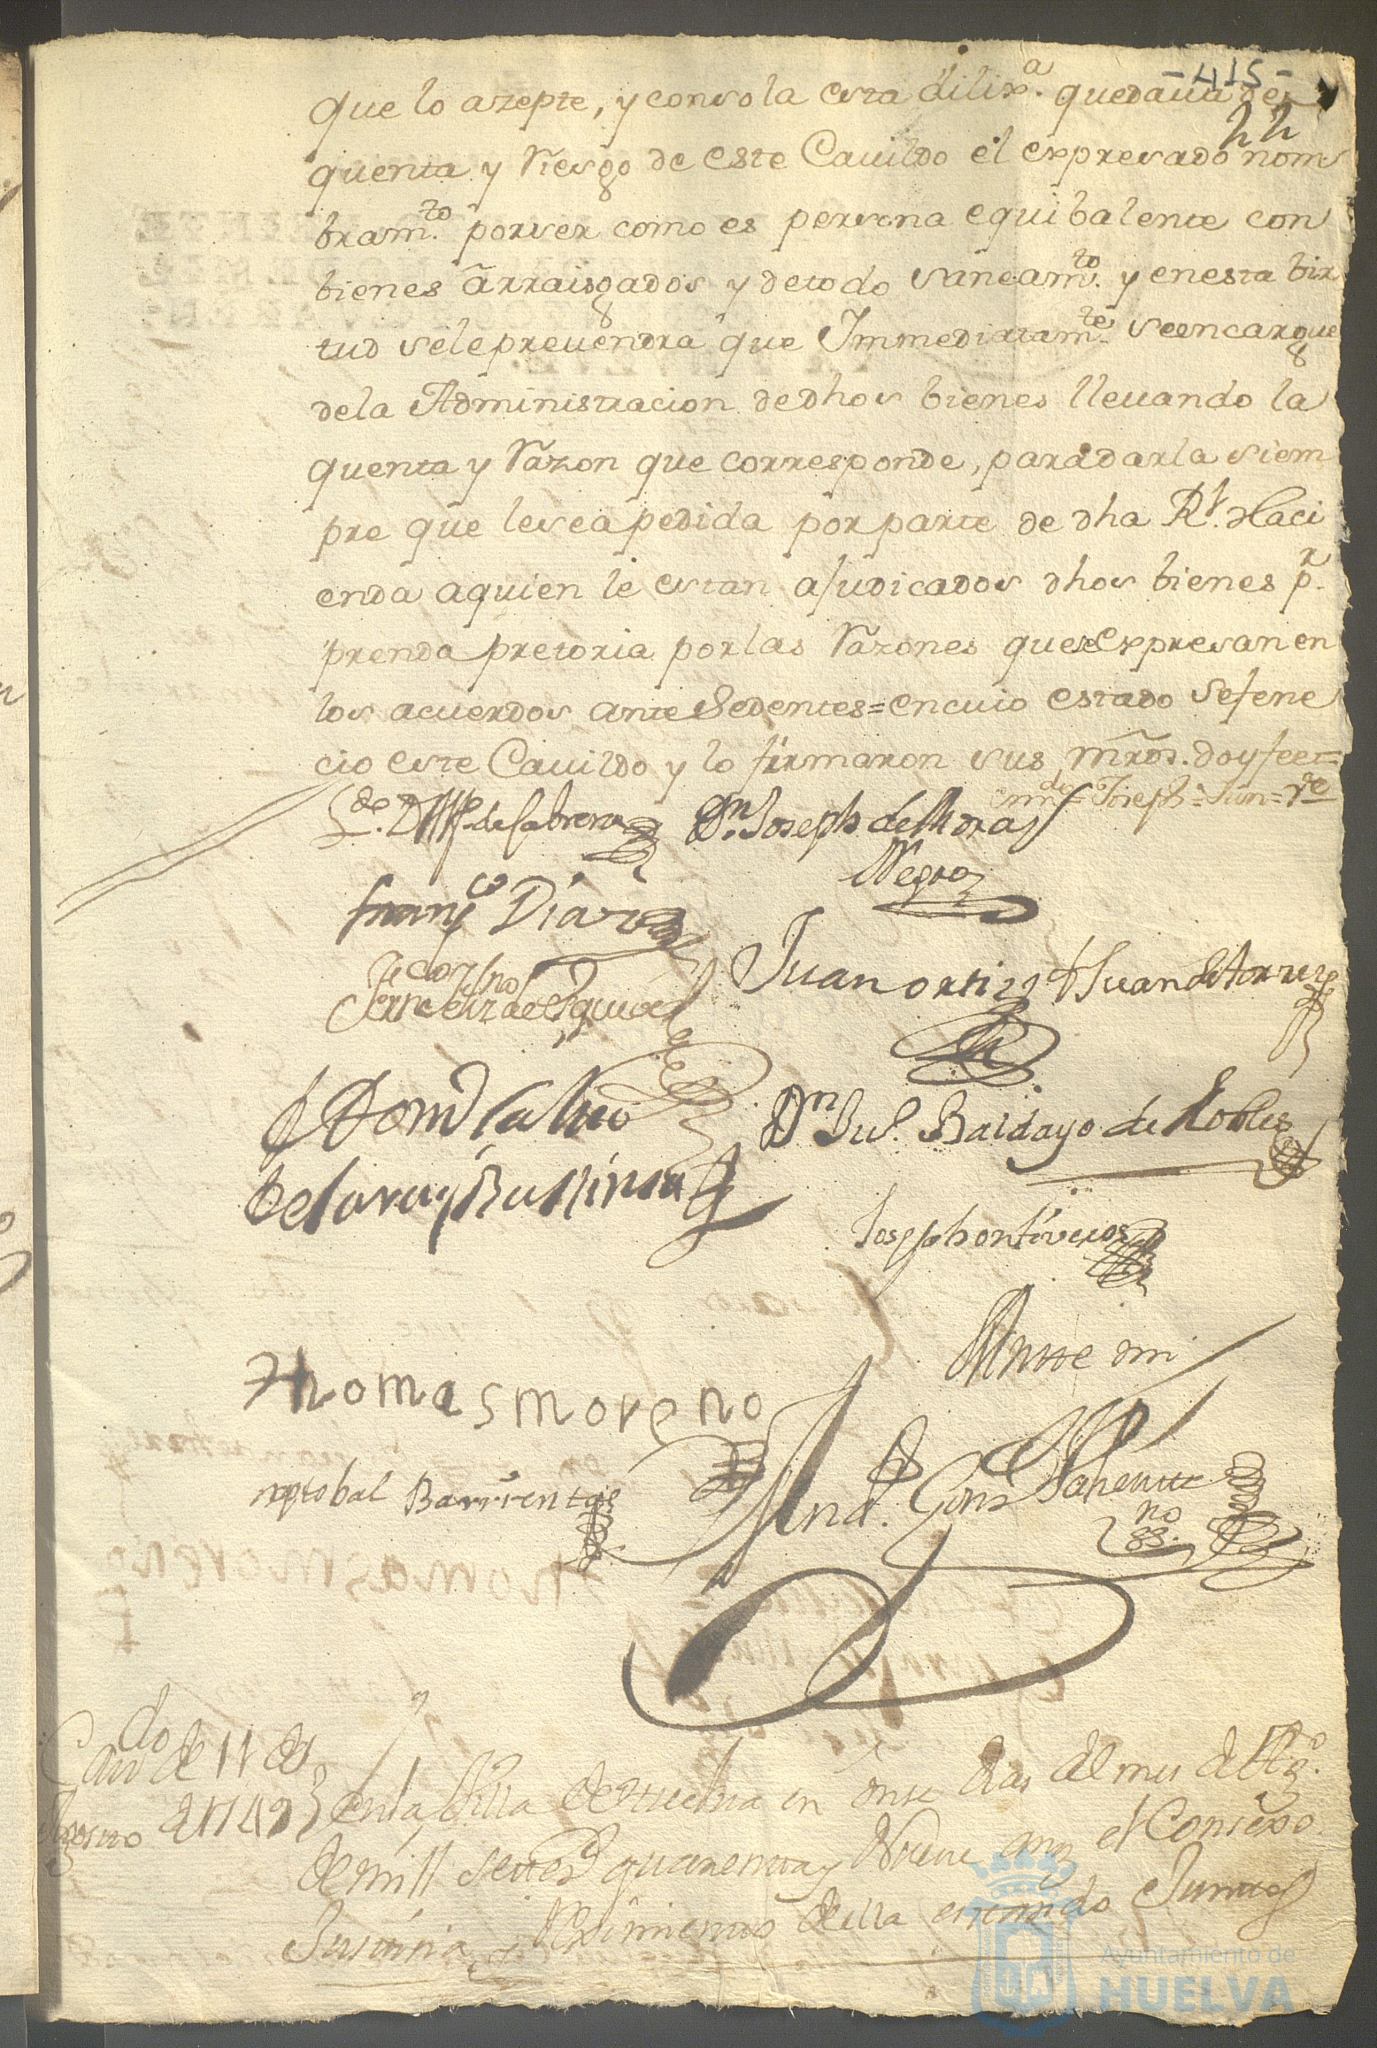 -415-
22
que lo azepte, y con sola esta dilix.a quedaua de
quenta y Riesgo de este Cauildo el expresado nom
bram.to por ser como es persona equibalente con
bienes arraisgados y detodo saneam.to y enesta bir
tud sele preuendra que Immediatam.te se encargue
dela Administracion de dhos bienes lleuando la
quenta y Razon que corresponde, para darla siem
pre que le sea pedida por parte de dha R.l Haci
enda a quien le estan ajudicados dhos bienes p.r
prenda pretoria por las Razones que se expresan en
los acuerdos antesedentes = en cuio estado se fene
cio este Cauildo y lo firmaron sus mrds. doy fee =
enm.do = Joseph = Jun =
L.do D.n de Cabrera D.n Joseph de Mora
Negro
Fran.co Diaz
Juan ortiz Juan de torres
de esquiuel
D.n Ju.o Baldayo de Robles
Joseph ontiveros
Antte mi
Thomas moreno
xptobal Barrientos And.s Gonz
no
Cau.do de 11 de
Agosto de 1749 en la Villa de Huelva en onse dias del mes de Ag.to
de mill setes.s quarenta y Nueve años el Consexo
Justicia y Reximiento de ella estando Juntos
Ayuntamiento de
HUELVA